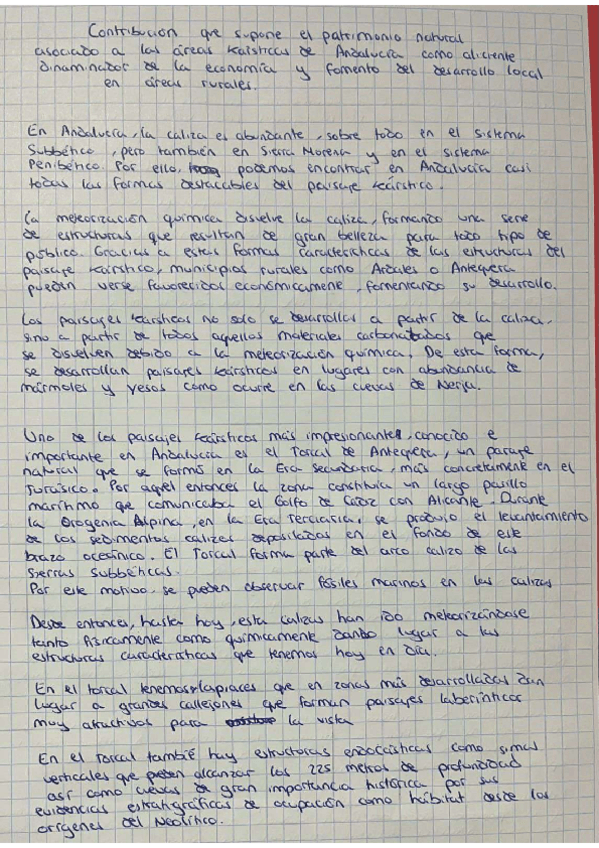 Contribución que supone el patrimonio natural
asociado a las áreas kársticas de Andalucía como aliciente
dinaminador de la economía y fomento del desarrollo local
en áreas rurales.
En Andalucía, la caliza es abundante, sobre todo en el sistema
Subbético, pero también en Sierra Morena y en el sistema
Penibético. Por ello, podemos encontrar en Andalucía casi
todas las formas destacables del paisaje kárstico.
La meteorización química disuelve la caliza, formando una serie
de estructuras que resultan de gran belleza para todo tipo de
público. Gracias a estas formas características de las estructuras del
paisaje kárstico, municipios rurales como Ardales o Antequera
pueden verse favorecidos económicamene, fomentando su desarrollo.
Los paisajes kársticos no solo se desarrollas a partir de la caliza,
sino a partir de todos aquellos materiales carbonatados que
se disuelven debido a la meteorización química. De esta forma,
se desarrollan paisajes kársticos en lugares con abundancia de
mármoles y yesos como ocurre en las cuevas de Nerja.
Uno de los paisajes kársticos más impresionantes, conocido e
importante en Andalucía es el Torcal de Antequera, un paraje
natural que se formó en la Era secundaria, más concretamente en el
Jurásico. Por aquel entonces la zona constituía un largo pasillo
marítimo que comunicaba el Golfo de Cádiz con Alicante. Durante
la Orogenia Alpina, en la Era Terciaria, se produjo el levantamiento
de los sedimentos calizos depositados en el fondo de este
brazo oceánico. El Torcal forma parte del arco calizo de las
Sierras Subbéticas.
Por este motivo, se pueden observar fósiles marinos en las calizas
Desde entonces, hasta hoy, esta calizas han ido meteorizándose
tanto físicamente como químicamente dando lugar a las
estructuras características que tenemos hoy en día.
En el torcal tenemos lapiaces que en zonas más desarrolladas dan
lugar a grandes callejones que forman paisajes laberínticos
muy atractivos para la vista
En el Torcal tambié hay estructuras endocársticas como simas
verticales que pueden alcanzar los 225 metros de profundidad
así como cuevas de gran importancia histórica por sus
evidencias estratigráficas de ocupación como hábitat desde los
orígenes del Neolítico.